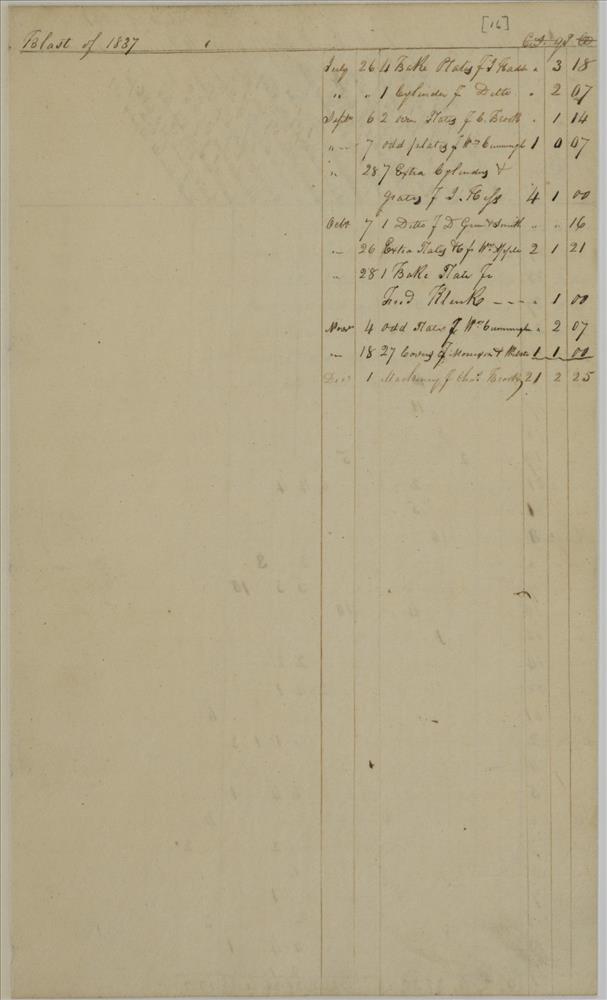 [16]
Blast of 1837 Ct. qs lb
July 26 4 Bake Plates f J " 3 18
" " 1 Cylinder f Ditto " 2 07
Sept 6 2 oven Plates f C. Brook " 1 14
" 7 odd plates f Wm Cunningh 1 0 07
" 28 7 Extra Cylinders &
grates f J. Hess 4 1 00
Octr 7 1 Ditto f D Green & Smith " " 16
" 26 Extra Plates & f Wm 2 1 21
" 28 1 Bake Plate for
Fred Klink - - - " 1 00
Novr 4 odd Plates f Wm Cunningh " 2 07
" 18 27 Covers f Morrison & 1 1 00
Decr 1 Machinery f Chas Brook 21 2 25